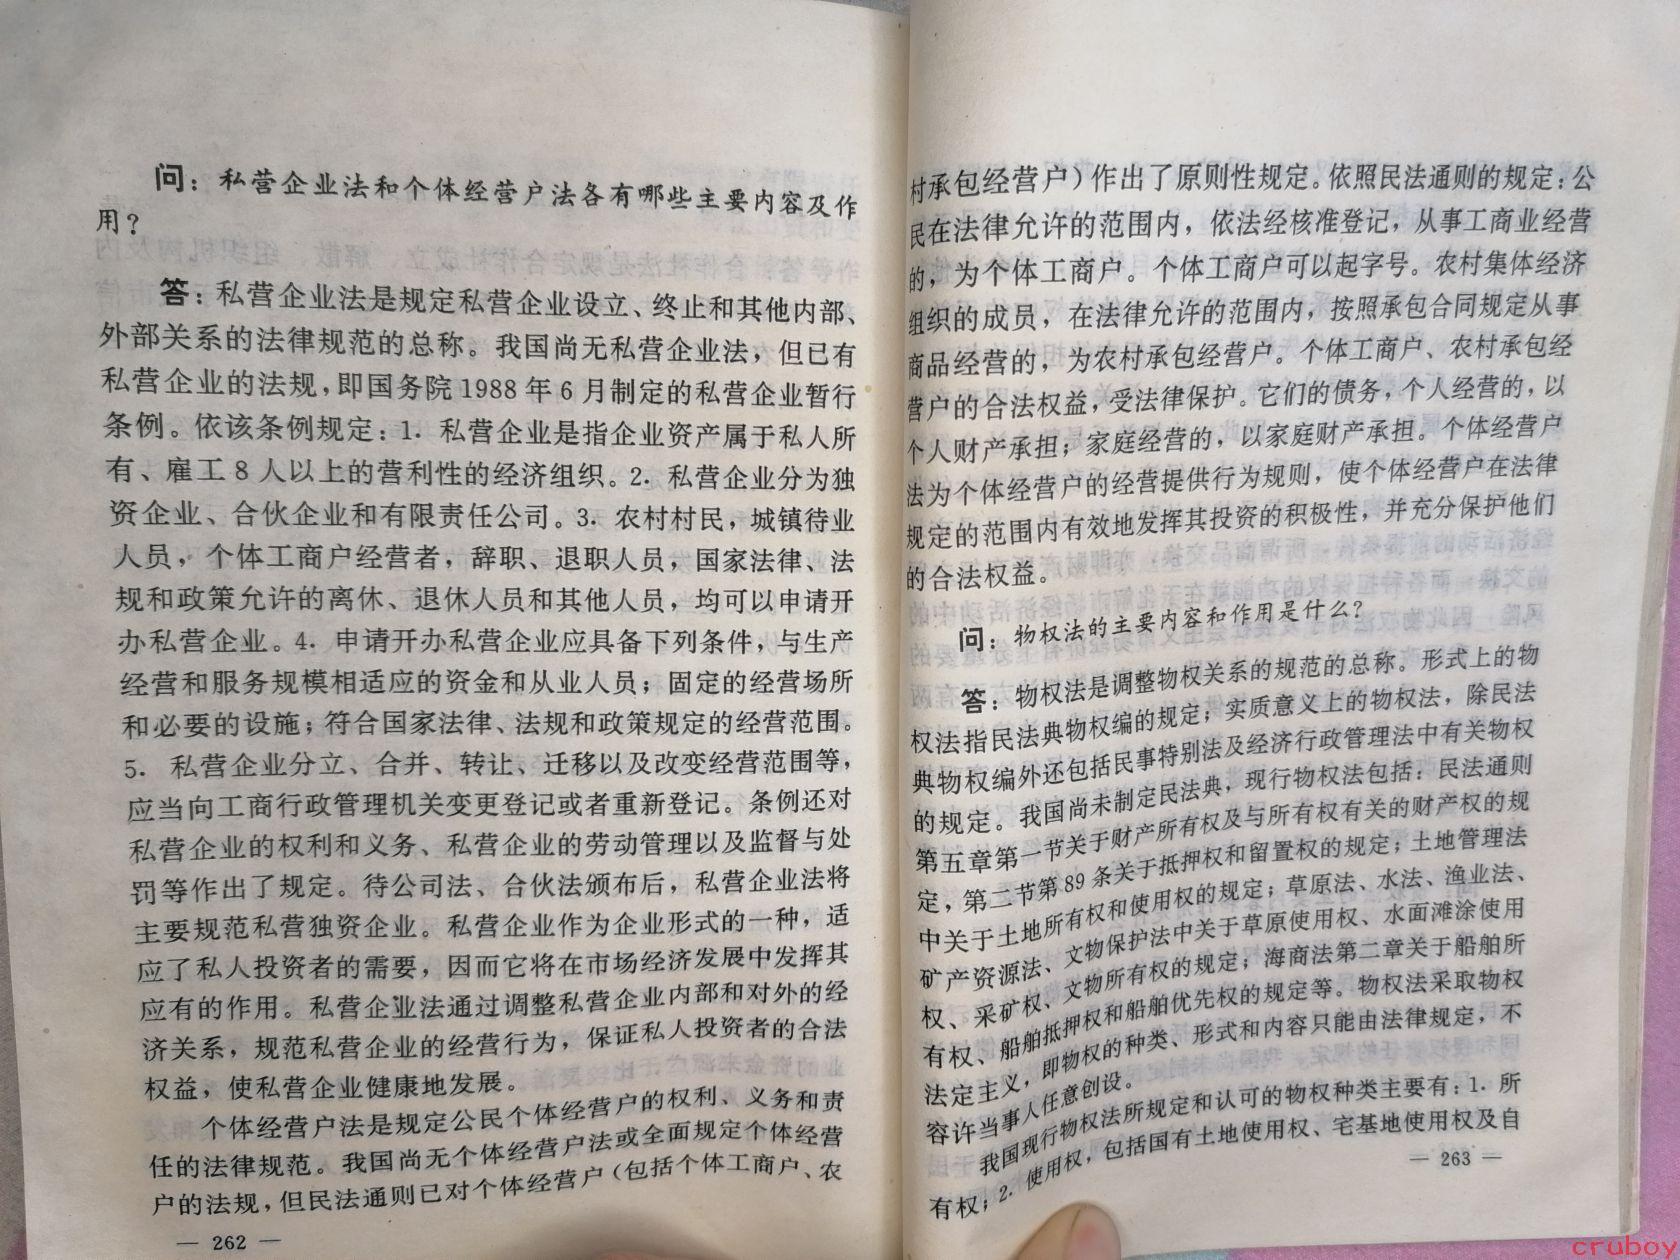 问：私营企业法和个体经营户法各有哪些主要内容及作
用？
答：私营企业法是规定私营企业设立、终止和其他内部、
外部关系的法律规范的总称。我国尚无私营企业法，但已有
私营企业的法规，即国务院1988年6月制定的私营企业暂行
条例。依该条例规定：1. 私营企业是指企业资产属于私人所
有、雇工8人以上的营利性的经济组织。2. 私营企业分为独
资企业、合伙企业和有限责任公司。3. 农村村民，城镇待业
人员，个体工商户经营者，辞职、退职人员，国家法律、法
规和政策允许的离休、退休人员和其他人员，均可以申请开
办私营企业。4. 申请开办私营企业应具备下列条件，与生产
经营和服务规模相适应的资金和从业人员；固定的经营场所
和必要的设施；符合国家法律、法规和政策规定的经营范围。
5. 私营企业分立、合并、转让、迁移以及改变经营范围等，
应当向工商行政管理机关变更登记或者重新登记。条例还对
私营企业的权利和义务、私营企业的劳动管理以及监督与处
罚等作出了规定。待公司法、合伙法颁布后，私营企业法将
主要规范私营独资企业。私营企业作为企业形式的一种，适
应了私人投资者的需要，因而它将在市场经济发展中发挥其
应有的作用。私营企业法通过调整私营企业内部和对外的经
济关系，规范私营企业的经营行为，保证私人投资者的合法
权益，使私营企业健康地发展。
个体经营户法是规定公民个体经营户的权利、义务和责
任的法律规范。我国尚无个体经营户法或全面规定个体经营
户的法规，但民法通则已对个体经营户（包括个体工商户、农
— 262 —
村承包经营户）作出了原则性规定。依照民法通则的规定：公
民在法律允许的范围内，依法经核准登记，从事工商业经营
的，为个体工商户。个体工商户可以起字号。农村集体经济
组织的成员，在法律允许的范围内，按照承包合同规定从事
商品经营的，为农村承包经营户。个体工商户、农村承包经
营户的合法权益，受法律保护。它们的债务，个人经营的，以
个人财产承担；家庭经营的，以家庭财产承担。个体经营户
法为个体经营户的经营提供行为规则，使个体经营户在法律
规定的范围内有效地发挥其投资的积极性，并充分保护他们
的合法权益。
问：物权法的主要内容和作用是什么？
答：物权法是调整物权关系的规范的总称。形式上的物
权法指民法典物权编的规定；实质意义上的物权法，除民法
典物权编外还包括民事特别法及经济行政管理法中有关物权
的规定。我国尚未制定民法典，现行物权法包括：民法通则
第五章第一节关于财产所有权及与所有权有关的财产权的规
定，第二节第89条关于抵押权和留置权的规定；土地管理法
中关于土地所有权和使用权的规定；草原法、水法、渔业法、
矿产资源法、文物保护法中关于草原使用权、水面滩涂使用
权、采矿权、文物所有权的规定；海商法第二章关于船舶所
有权、船舶抵押权和船舶优先权的规定等。物权法采取物权
法定主义，即物权的种类、形式和内容只能由法律规定，不
容许当事人任意创设。
我国现行物权法所规定和认可的物权种类主要有：1. 所
有权；2. 使用权，包括国有土地使用权、宅基地使用权及自
— 263 —
cruboy